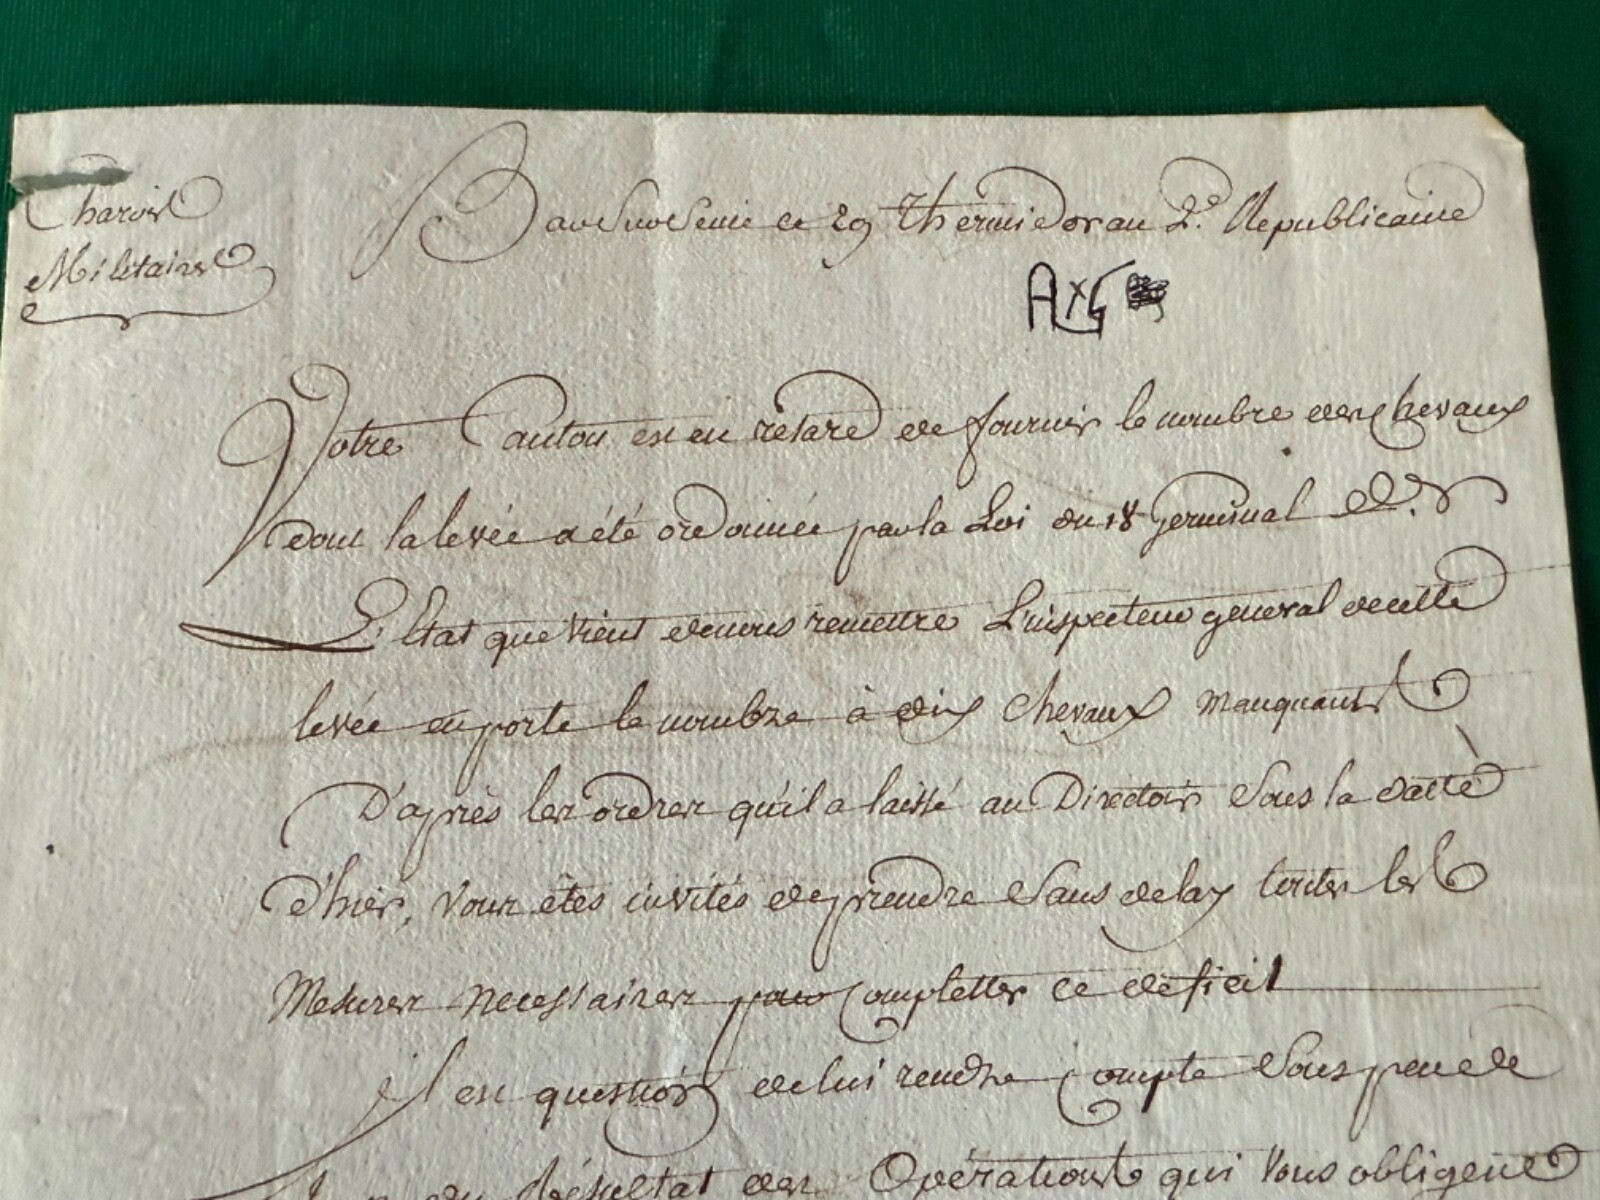 Charois
Militaires
Bar sur Seine ce 29 Thermidor an 2.e Republicaine
Votre Canton est en retard de fournir le nombre des Chevaux
dont la levée a été ordonnée par la Loi du 18 Germinal d.r
L'Etat que vient de nous remettre L'inspecteur general de cette
levée en porte le nombre à dix Chevaux Manquants
D'après les ordres qu'il a laissé au Directoir Sous la datte
d'hier, Vous êtes invités de prendre Sans delay toutes les
Mesures necessaires pour Completter ce deficit
il est question de lui rendre Compte Sous peu de
du Résultat des Opérations qui Vous obligent